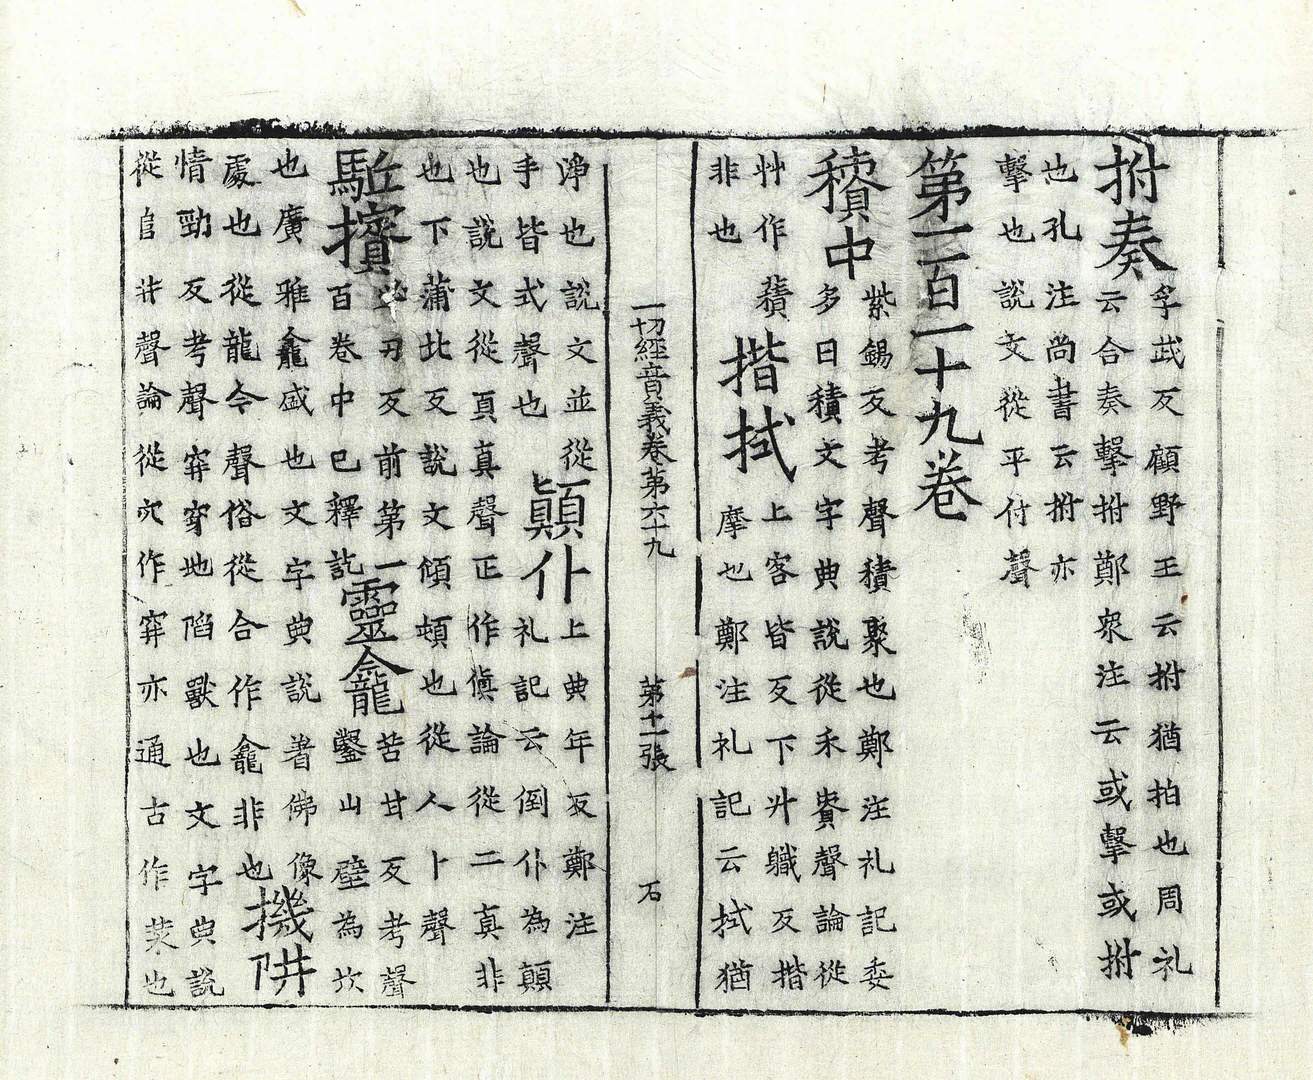 拊奏
孚武反顧野王云拊猶拍也周礼
云合奏擊拊鄭衆注云或擊或拊
也孔注尚書云拊亦
擊也說文從手付聲
第一百一十九卷
積中
紫錫反考聲積聚也鄭注礼記委
多曰積文字典說從禾責聲論從
艸作𧂐
非也
揩拭
上客皆反下升職反揩
摩也鄭注礼記云拭猶
一切經音義卷第六十九 第十一張 石
淨也說文並從
手皆式聲也
顛仆
上典年反鄭注
礼記云倒仆為顛
也說文從頁真聲正作傎論從二真非
也下蒲北反說文傾頓也從人卜聲
駈擯
必刃反前第一
百卷中已釋訖
靈龕
苦甘反考聲
鑿山壁為坎
也廣雅龕盛也文字典說著佛像
處也從龍今聲俗從合作龕非也
機阱
情勁反考聲穽穿地陷獸也文字典說
從𨸏井聲論從穴作穽亦通古作汬也